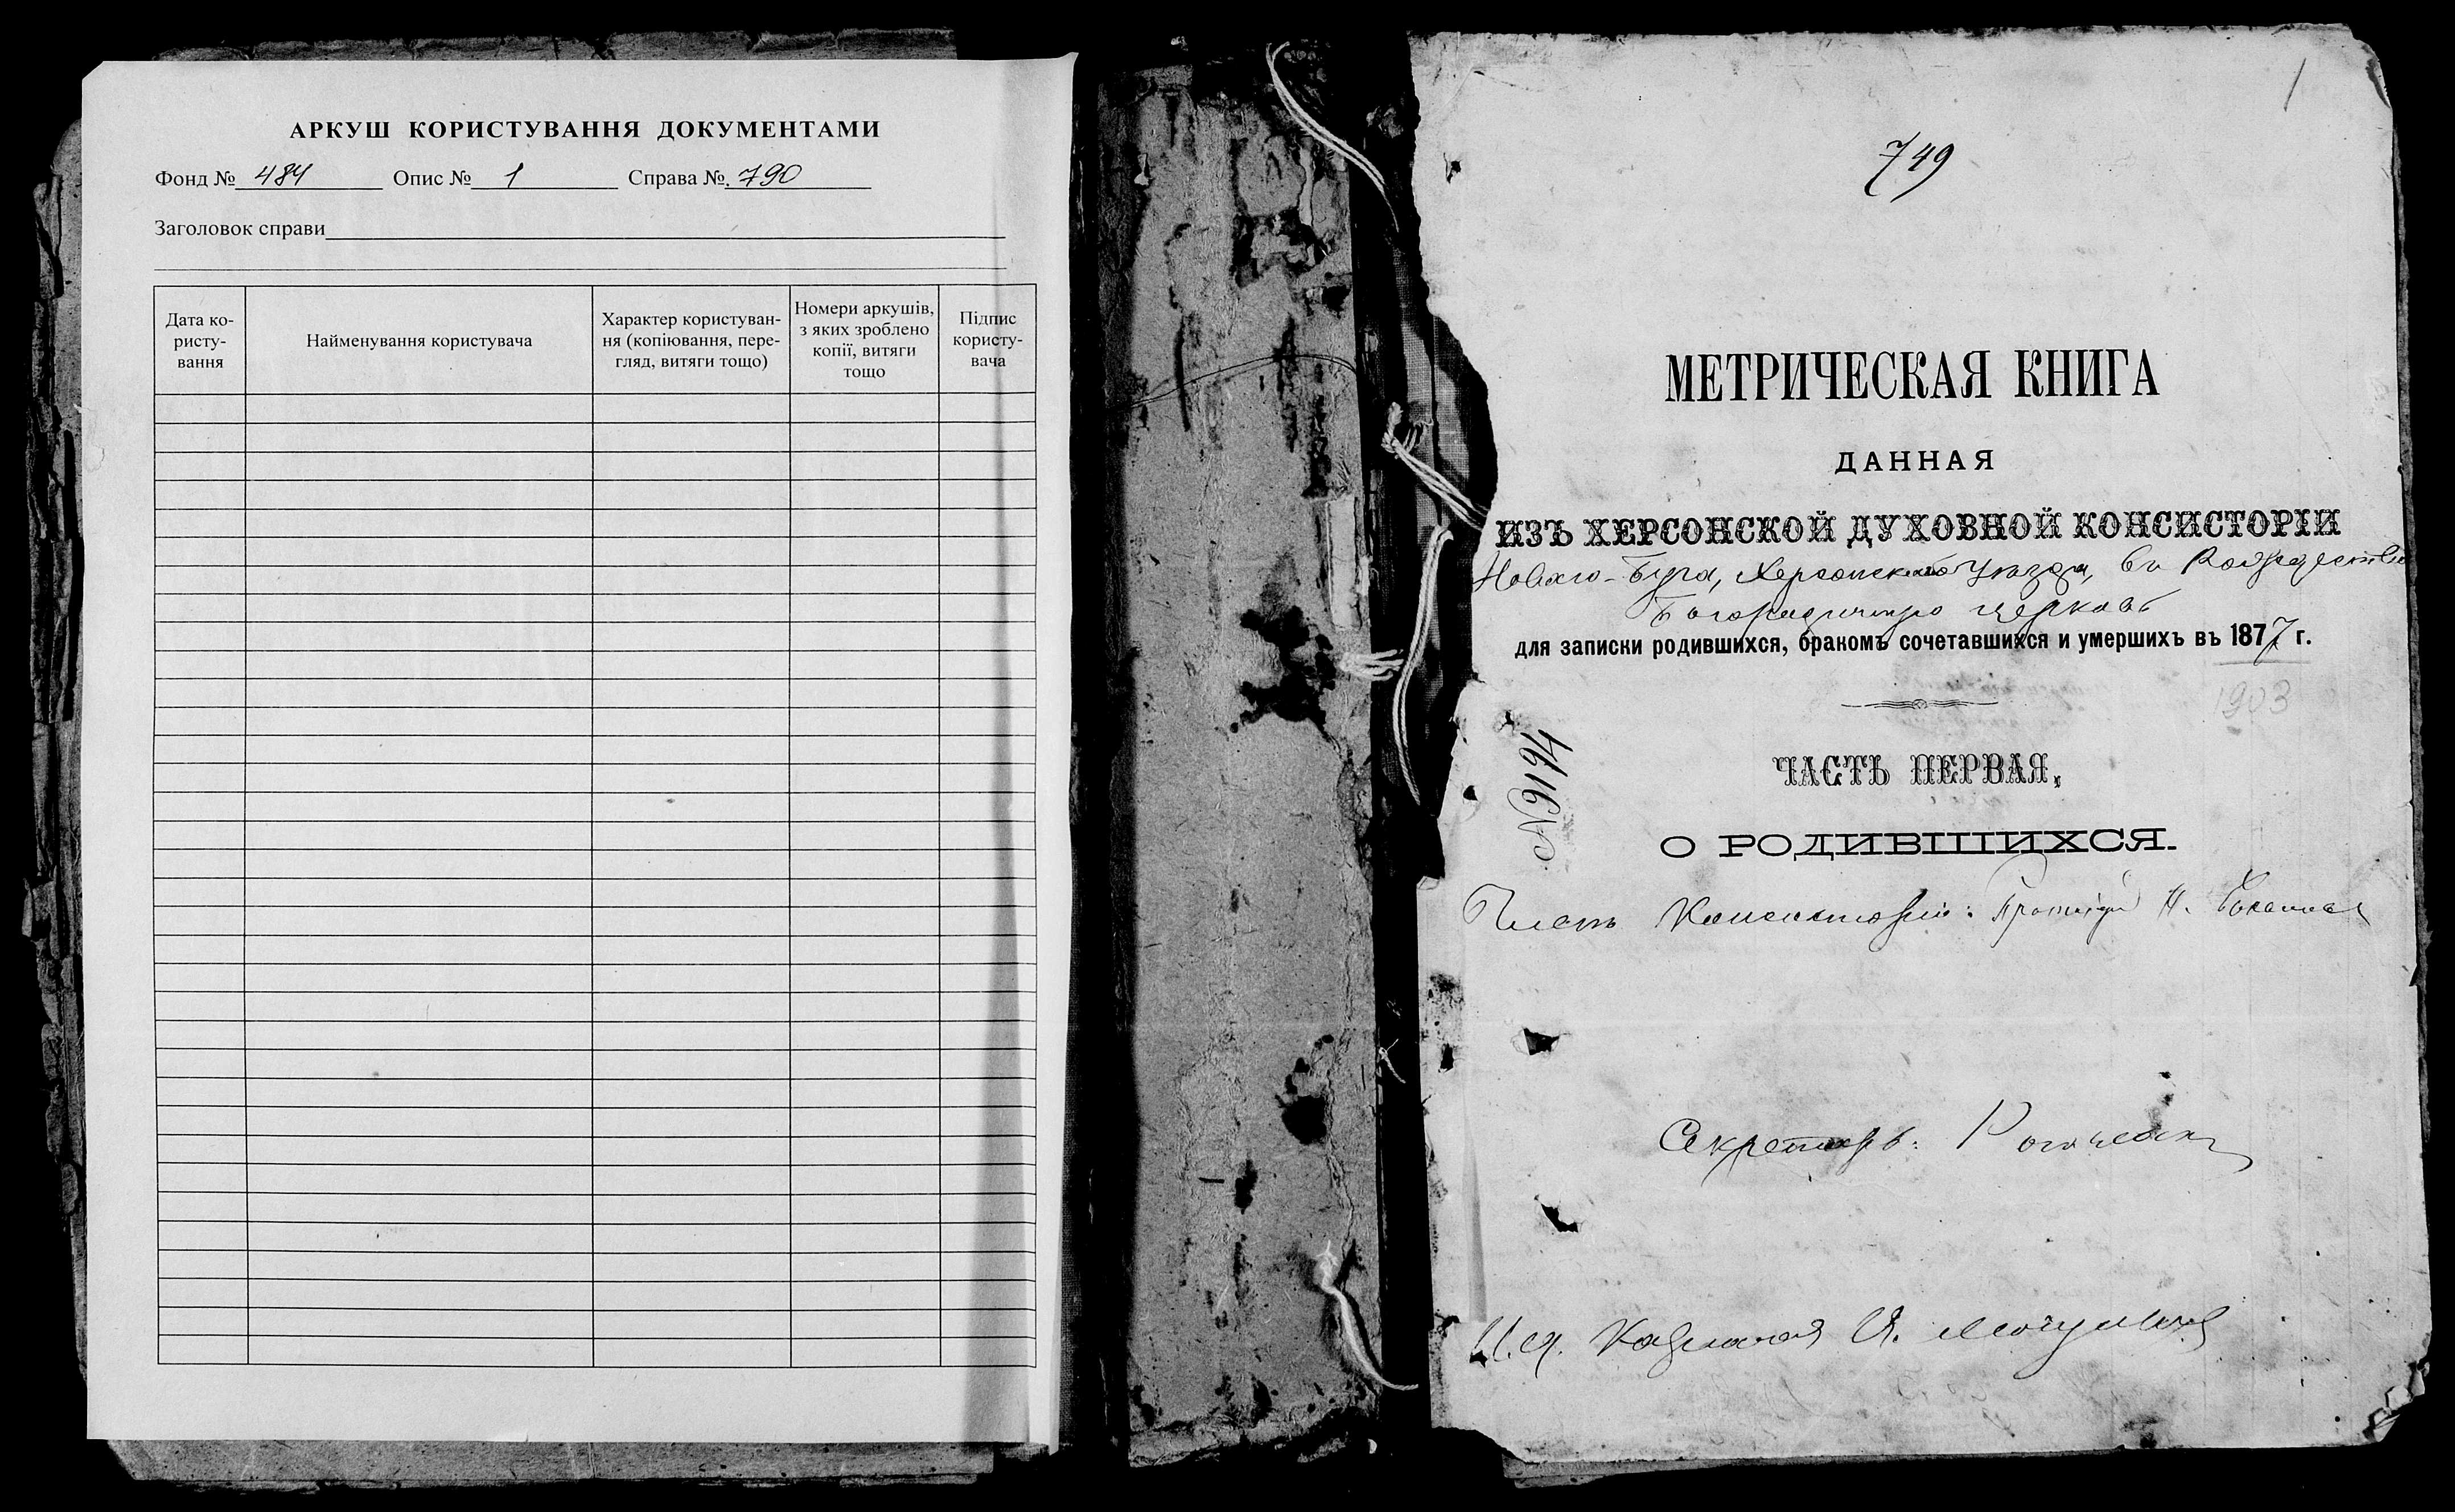 АРКУШ КОРИСТУВАННЯ ДОКУМЕНТАМИ
Фонд № 484 Опис № 1 Справа № 790
Заголовок справи
Дата ко-
ристу-
вання
Найменування користувача
Характер користуван-
ня (копіювання, пере-
гляд, витяги тощо)
Номери аркушів,
з яких зроблено
копії, витяги
тощо
Підпис
користу-
вача
1
749
МЕТРИЧЕСКАЯ КНИГА
ДАННАЯ
ИЗЪ ХЕРСОНСКОЙ ДУХОВНОЙ КОНСИСТОРІИ
Новаго-Буга, Херсонскаго уѣзда, въ Рождество
Богородичную церковь
для записки родившихся, бракомъ сочетавшихся и умершихъ въ 1877 г.
1903
ЧАСТЬ ПЕРВАЯ,
О РОДИВШИХСЯ.
№ 9194
Членъ Консисторіи: Протоіерей Н.
Секретарь:
И. д. Казначея